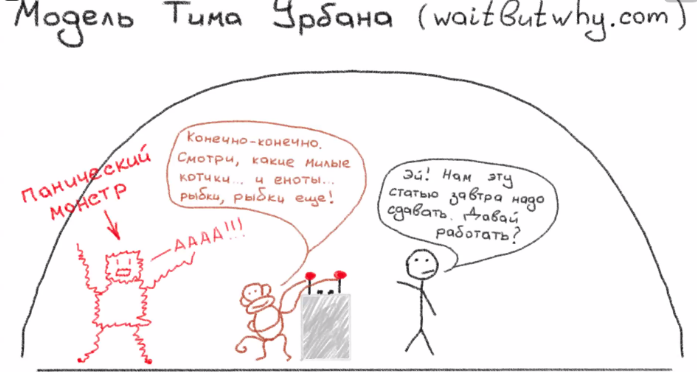 Модель Тима Урбана (waitButwhy.com)
Панический
монстр
АААА!!!
Конечно-конечно.
Смотри, какие милые
котики... и еноты...
рыбки, рыбки еще!
Эй! Нам эту
статью завтра надо
сдавать. Давай
работать?